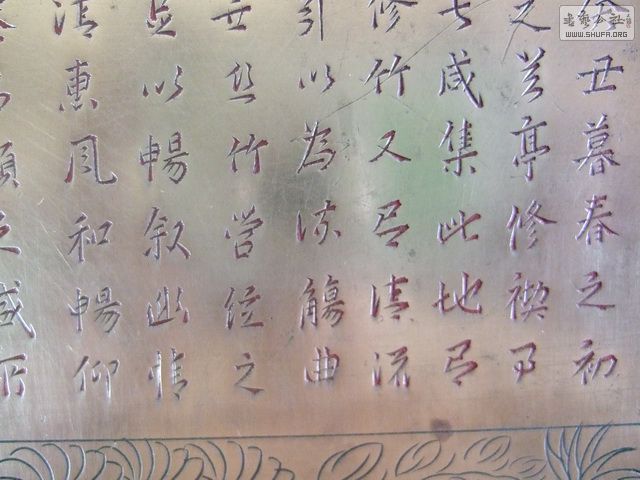 丑暮春之初
之兰亭修禊事
咸集此地有
修竹又有清流
引以為流觴曲
丝竹管弦之
足以暢叙幽情
清惠风和暢仰
類之盛所
書藝公社
WWW.SHUFA.ORG